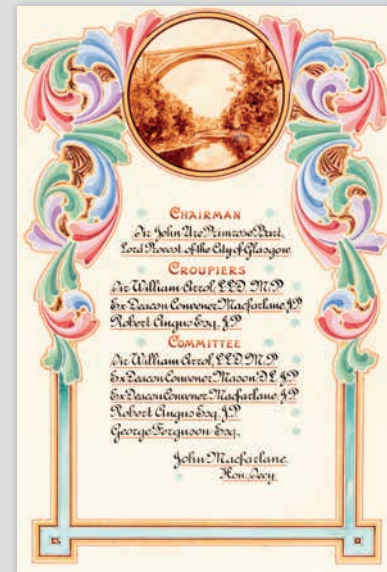 CHAIRMAN
Sir John Ure Primrose, Bart,
Lord Provost of the City of Glasgow
CROUPIERS
Sir William Arrol, LLD. M.P.
Ex Deacon Convener Macfarlane, J.P.
Robert Angus Esq. J.P.
COMMITTEE
Sir William Arrol, LLD. M.P.
Ex Deacon Convener Mason D.L. J.P.
Ex Deacon Convener Macfarlane, J.P.
Robert Angus Esq. J.P.
George Ferguson Esq.
John Macfarlane
Hon. Secy.